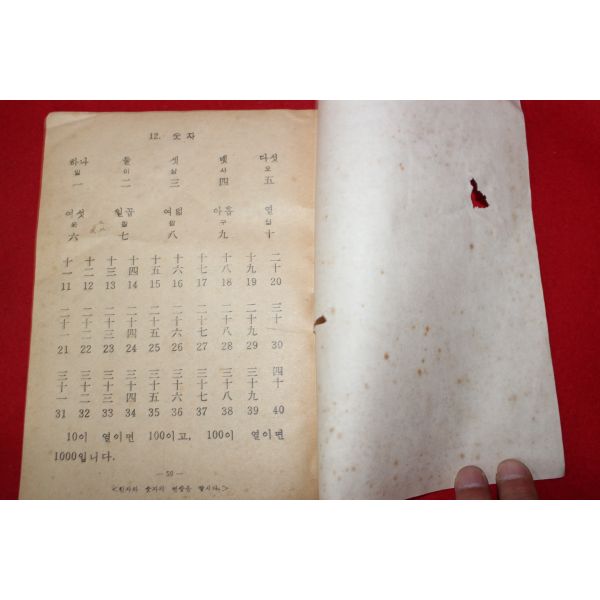 12. 숫자
하나 둘 셋 넷 다섯
일 이 삼 사 오
一 二 三 四 五
여섯 일곱 여덟 아홉 열
육 칠 팔 구 십
六 七 八 九 十
十 十 十 十 十 十 十 十 十 二
一 二 三 四 五 六 七 八 九 十
11 12 13 14 15 16 17 18 19 20
二 二 二 二 二 二 二 二 二 三
十 十 十 十 十 十 十 十 十 十
一 二 三 四 五 六 七 八 九
21 22 23 24 25 26 27 28 29 30
三 三 三 三 三 三 三 三 三 四
十 十 十 十 十 十 十 十 十 十
一 二 三 四 五 六 七 八 九
31 32 33 34 35 36 37 38 39 40
10이 열이면 100이고, 100이 열이면
1000입니다.
— 59 —
<한자와 숫자의 현장을 합시다.>